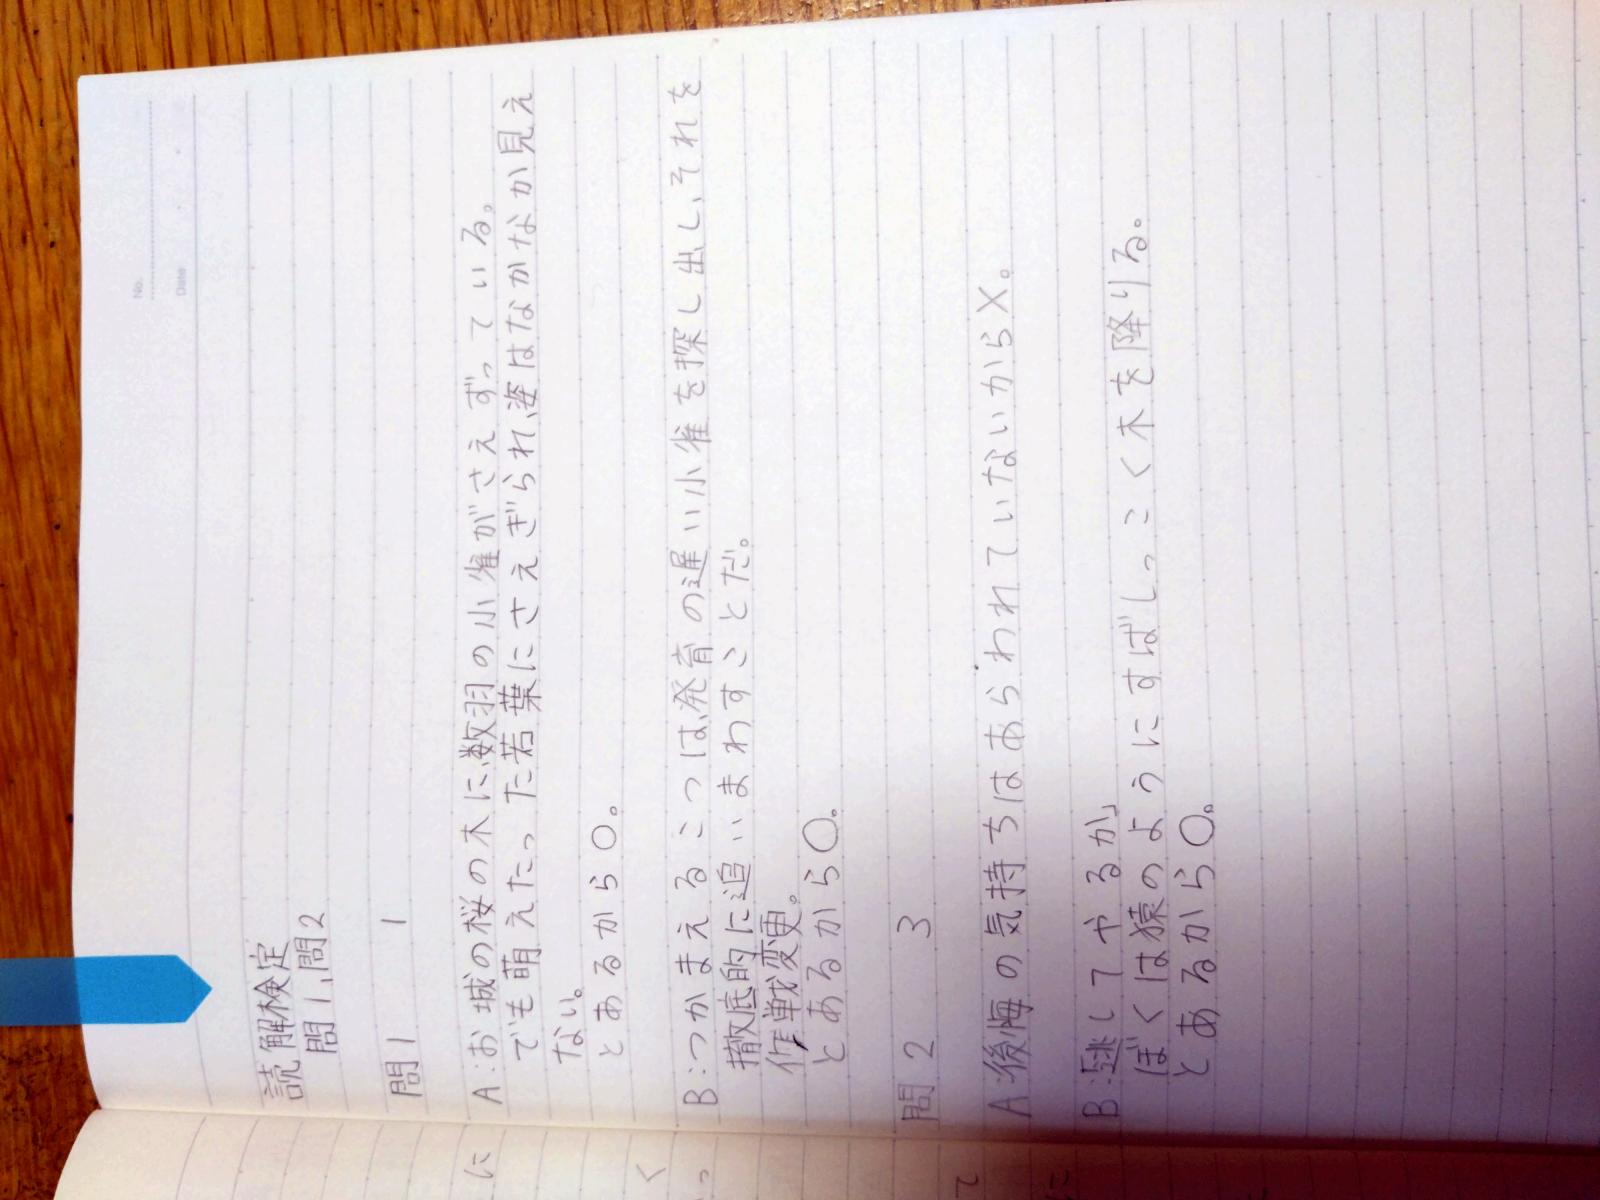 No.
Date
読解検定
問1,問2
問1 1
A:お城の桜の木に、数羽の小雀がさえずっている。
でも萌えたった若葉にさえぎられ、姿はなかなか見え
ない。
とあるから〇。
B:つかまえるこつは、発育の遅い小雀を探し出し、それを
撤底的に追いまわすことだ。
作戦変更。
とあるから〇。
問2 3
A:後悔の気持ちはあらわれていないから×。
B:「逃してやるか」
ぼくは猿のようにすばしっこく木を降りる。
とあるから〇。
に
く
っ
て
に